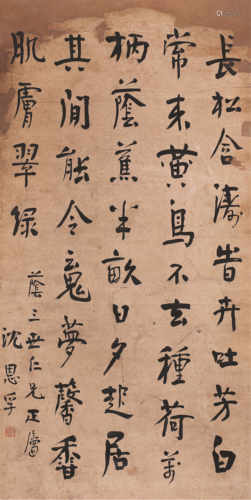 長松含濤昔卉吐芳白
常來黃鳥不去種荷萬
柄蔭蕉半畝日夕起居
其間能令魂夢馨香
肌膚翠綠
蔭三世仁兄正屬
沈恩孚